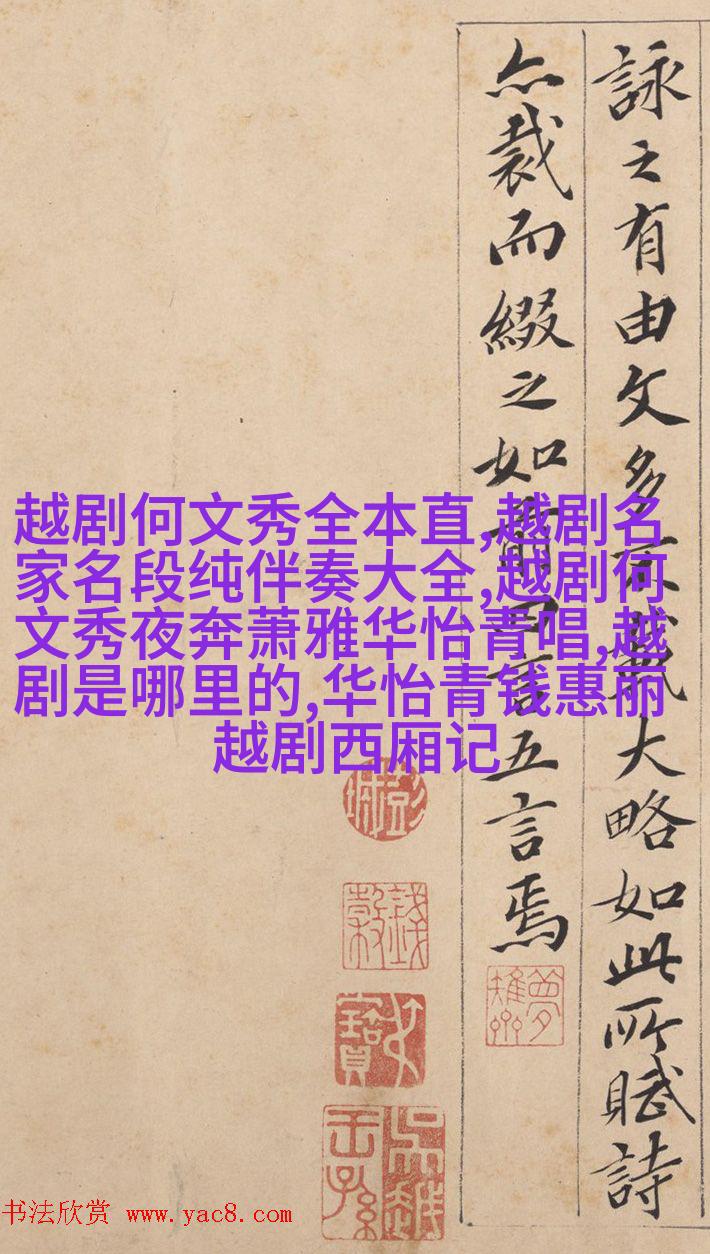 詠之有由文多不載大略如此所賦詩
亦裁而綴之如前四言五言焉
越剧何文秀全本直,越剧名
家名段纯伴奏大全,越剧何
文秀夜奔萧雅华怡青唱,越
剧是哪里的,华怡青钱惠丽
越剧西厢记
书法欣赏 www.yac8.com